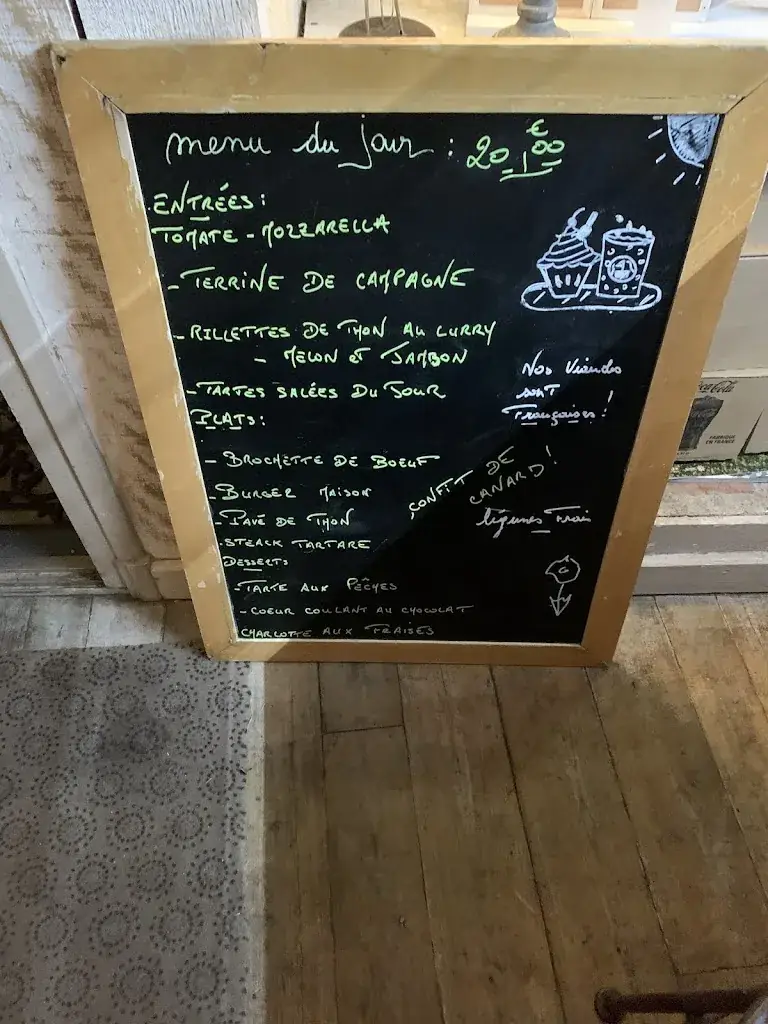 menu du jour : 20,00 €
ENTRÉES :
TOMATE - MOZZARELLA
- TERRINE DE CAMPAGNE
- RILLETTES DE THON AU CURRY
- MELON et JAMBON
- TARTES SALÉES DU JOUR
Nos Viandes
sont
Françaises !
PLATS :
- BROCHETTE DE BOEUF
- BURGER MAISON
- PAVÉ DE THON
- STEACK TARTARE
CONFIT DE
CANARD !
légumes Frais
DESSERTS
- TARTE AUX PÊCHES
- COEUR COULANT AU CHOCOLAT
CHARLOTTE AUX FRAISES
Coca-Cola
FABRIQUÉ
EN FRANCE